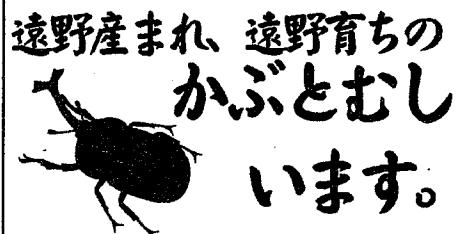 遠野産まれ、遠野育ちの
かぶとむし
います。